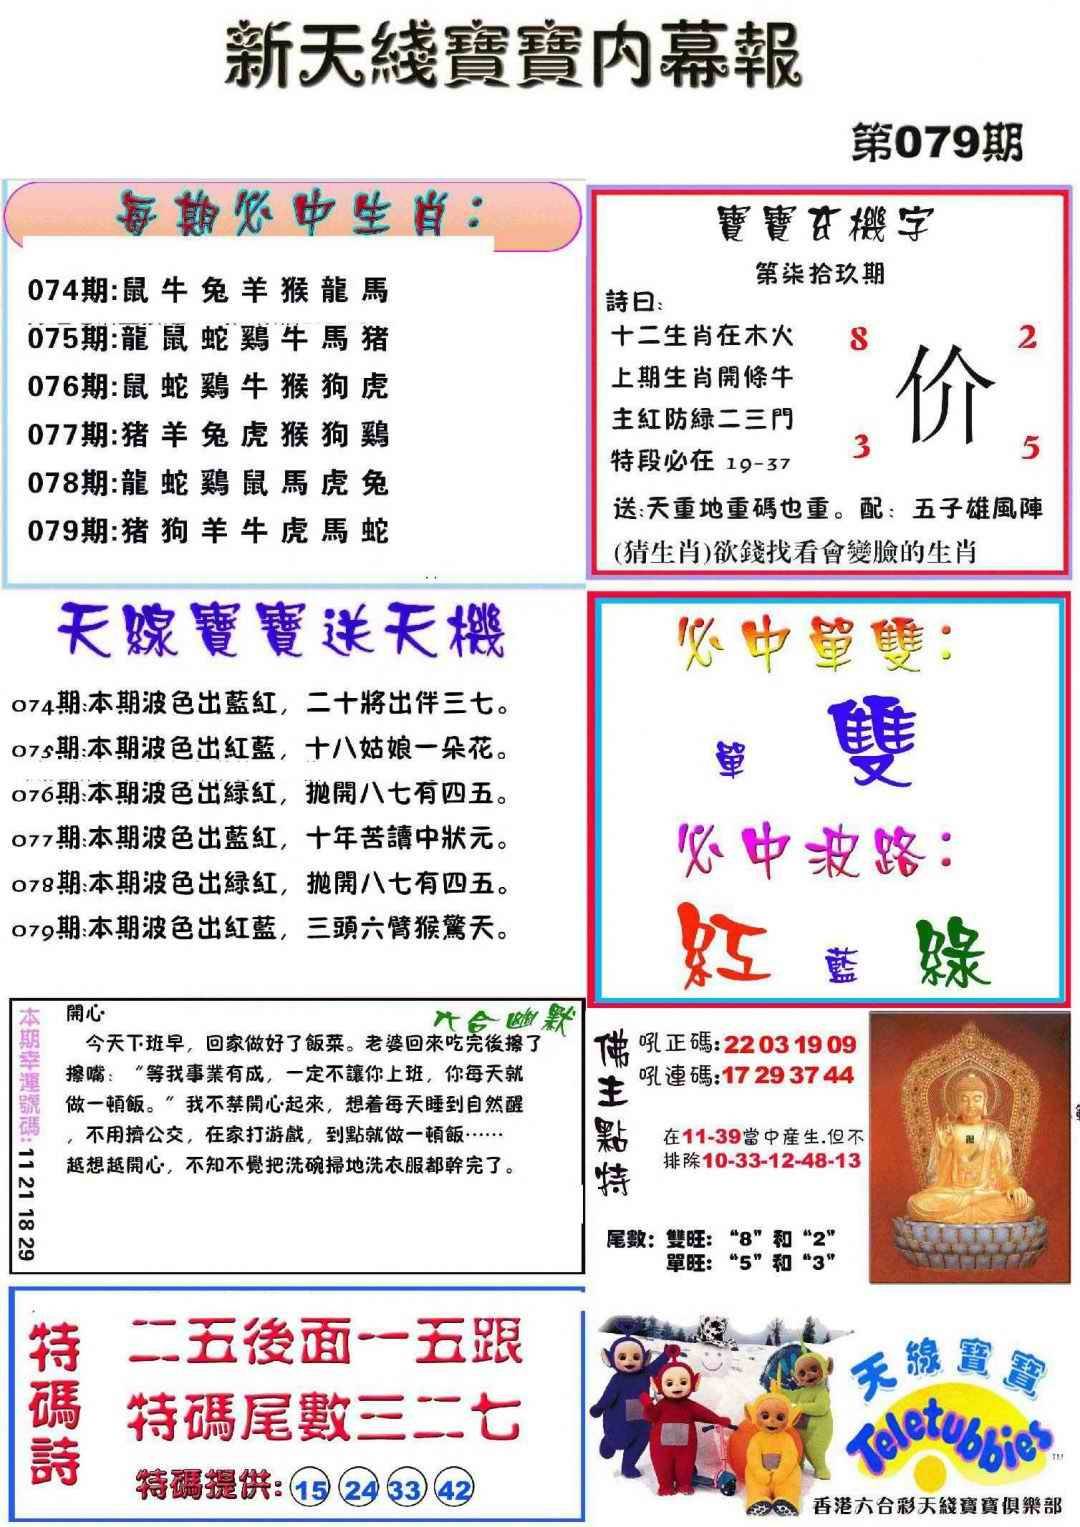 新天綫寶寶内幕報
第079期
每期必中生肖：
074期:鼠牛兔羊猴龍馬
075期:龍鼠蛇鷄牛馬猪
076期:鼠蛇鷄牛猴狗虎
077期:猪羊兔虎猴狗鷄
078期:龍蛇鷄鼠馬虎兔
079期:猪狗羊牛虎馬蛇
寶寶玄機字
第柒拾玖期
詩曰:
十二生肖在木火
上期生肖開條牛
主紅防緑二三門
特段必在 19-37
8 2
价
3 5
送:天重地重碼也重。配：五子雄風陣
(猜生肖)欲錢找看會變臉的生肖
天線寶寶送天機
074期:本期波色出藍紅，二十將出伴三七。
075期:本期波色出紅藍，十八姑娘一朵花。
076期:本期波色出緑紅，抛開八七有四五。
077期:本期波色出藍紅，十年苦讀中狀元。
078期:本期波色出緑紅，抛開八七有四五。
079期:本期波色出紅藍，三頭六臂猴驚天。
必中單雙：
單 雙
必中波路：
紅 藍 綠
本期幸運號碼: 11 21 18 29
六合幽默
開心
今天下班早，回家做好了飯菜。老婆回來吃完後擦了
擦嘴：“等我事業有成，一定不讓你上班，你每天就
做一頓飯。”我不禁開心起來，想着每天睡到自然醒
，不用擠公交，在家打游戲，到點就做一頓飯……
越想越開心，不知不覺把洗碗掃地洗衣服都幹完了。
佛主點特
吼正碼:22 03 19 09
吼連碼:17 29 37 44
在11-39當中産生.但不
排除10-33-12-48-13
尾數：雙旺：“8”和“2”
單旺：“5”和“3”
特碼詩
二五後面一五跟
特碼尾數三二七
特碼提供: 15 24 33 42
天線寶寶
Teletubbies
TM
香港六合彩天綫寶寶俱樂部